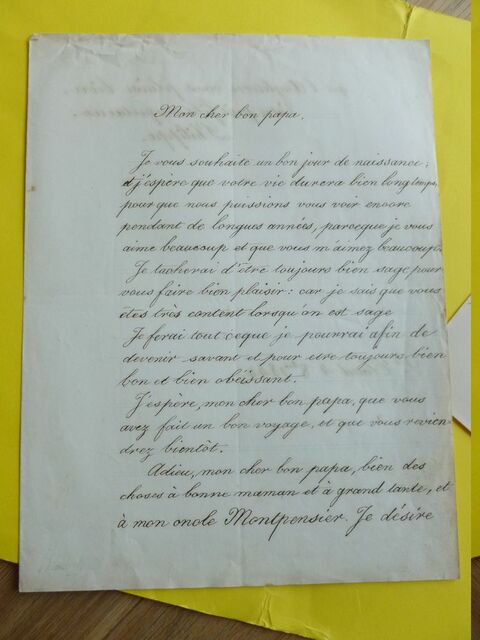 Mon cher bon papa.
Je vous souhaite un bon jour de naissance;
et j'espère que votre vie durera bien longtemps,
pour que nous puissions vous voir encore
pendant de longues années, parceque je vous
aime beaucoup et que vous m'aimez beaucoup.
Je tacherai d'être toujours bien sage pour
vous faire bien plaisir: car je sais que vous
êtes très content lorsqu'on est sage
Je ferai tout ceque je pourrai afin de
devenir savant et pour etre toujours bien
bon et bien obéissant.
J'espère, mon cher bon papa, que vous
avez fait un bon voyage, et que vous revien
drez bientôt.
Adieu, mon cher bon papa, bien des
choses à bonne maman et à grand tante, et
à mon oncle Montpensier. Je désire